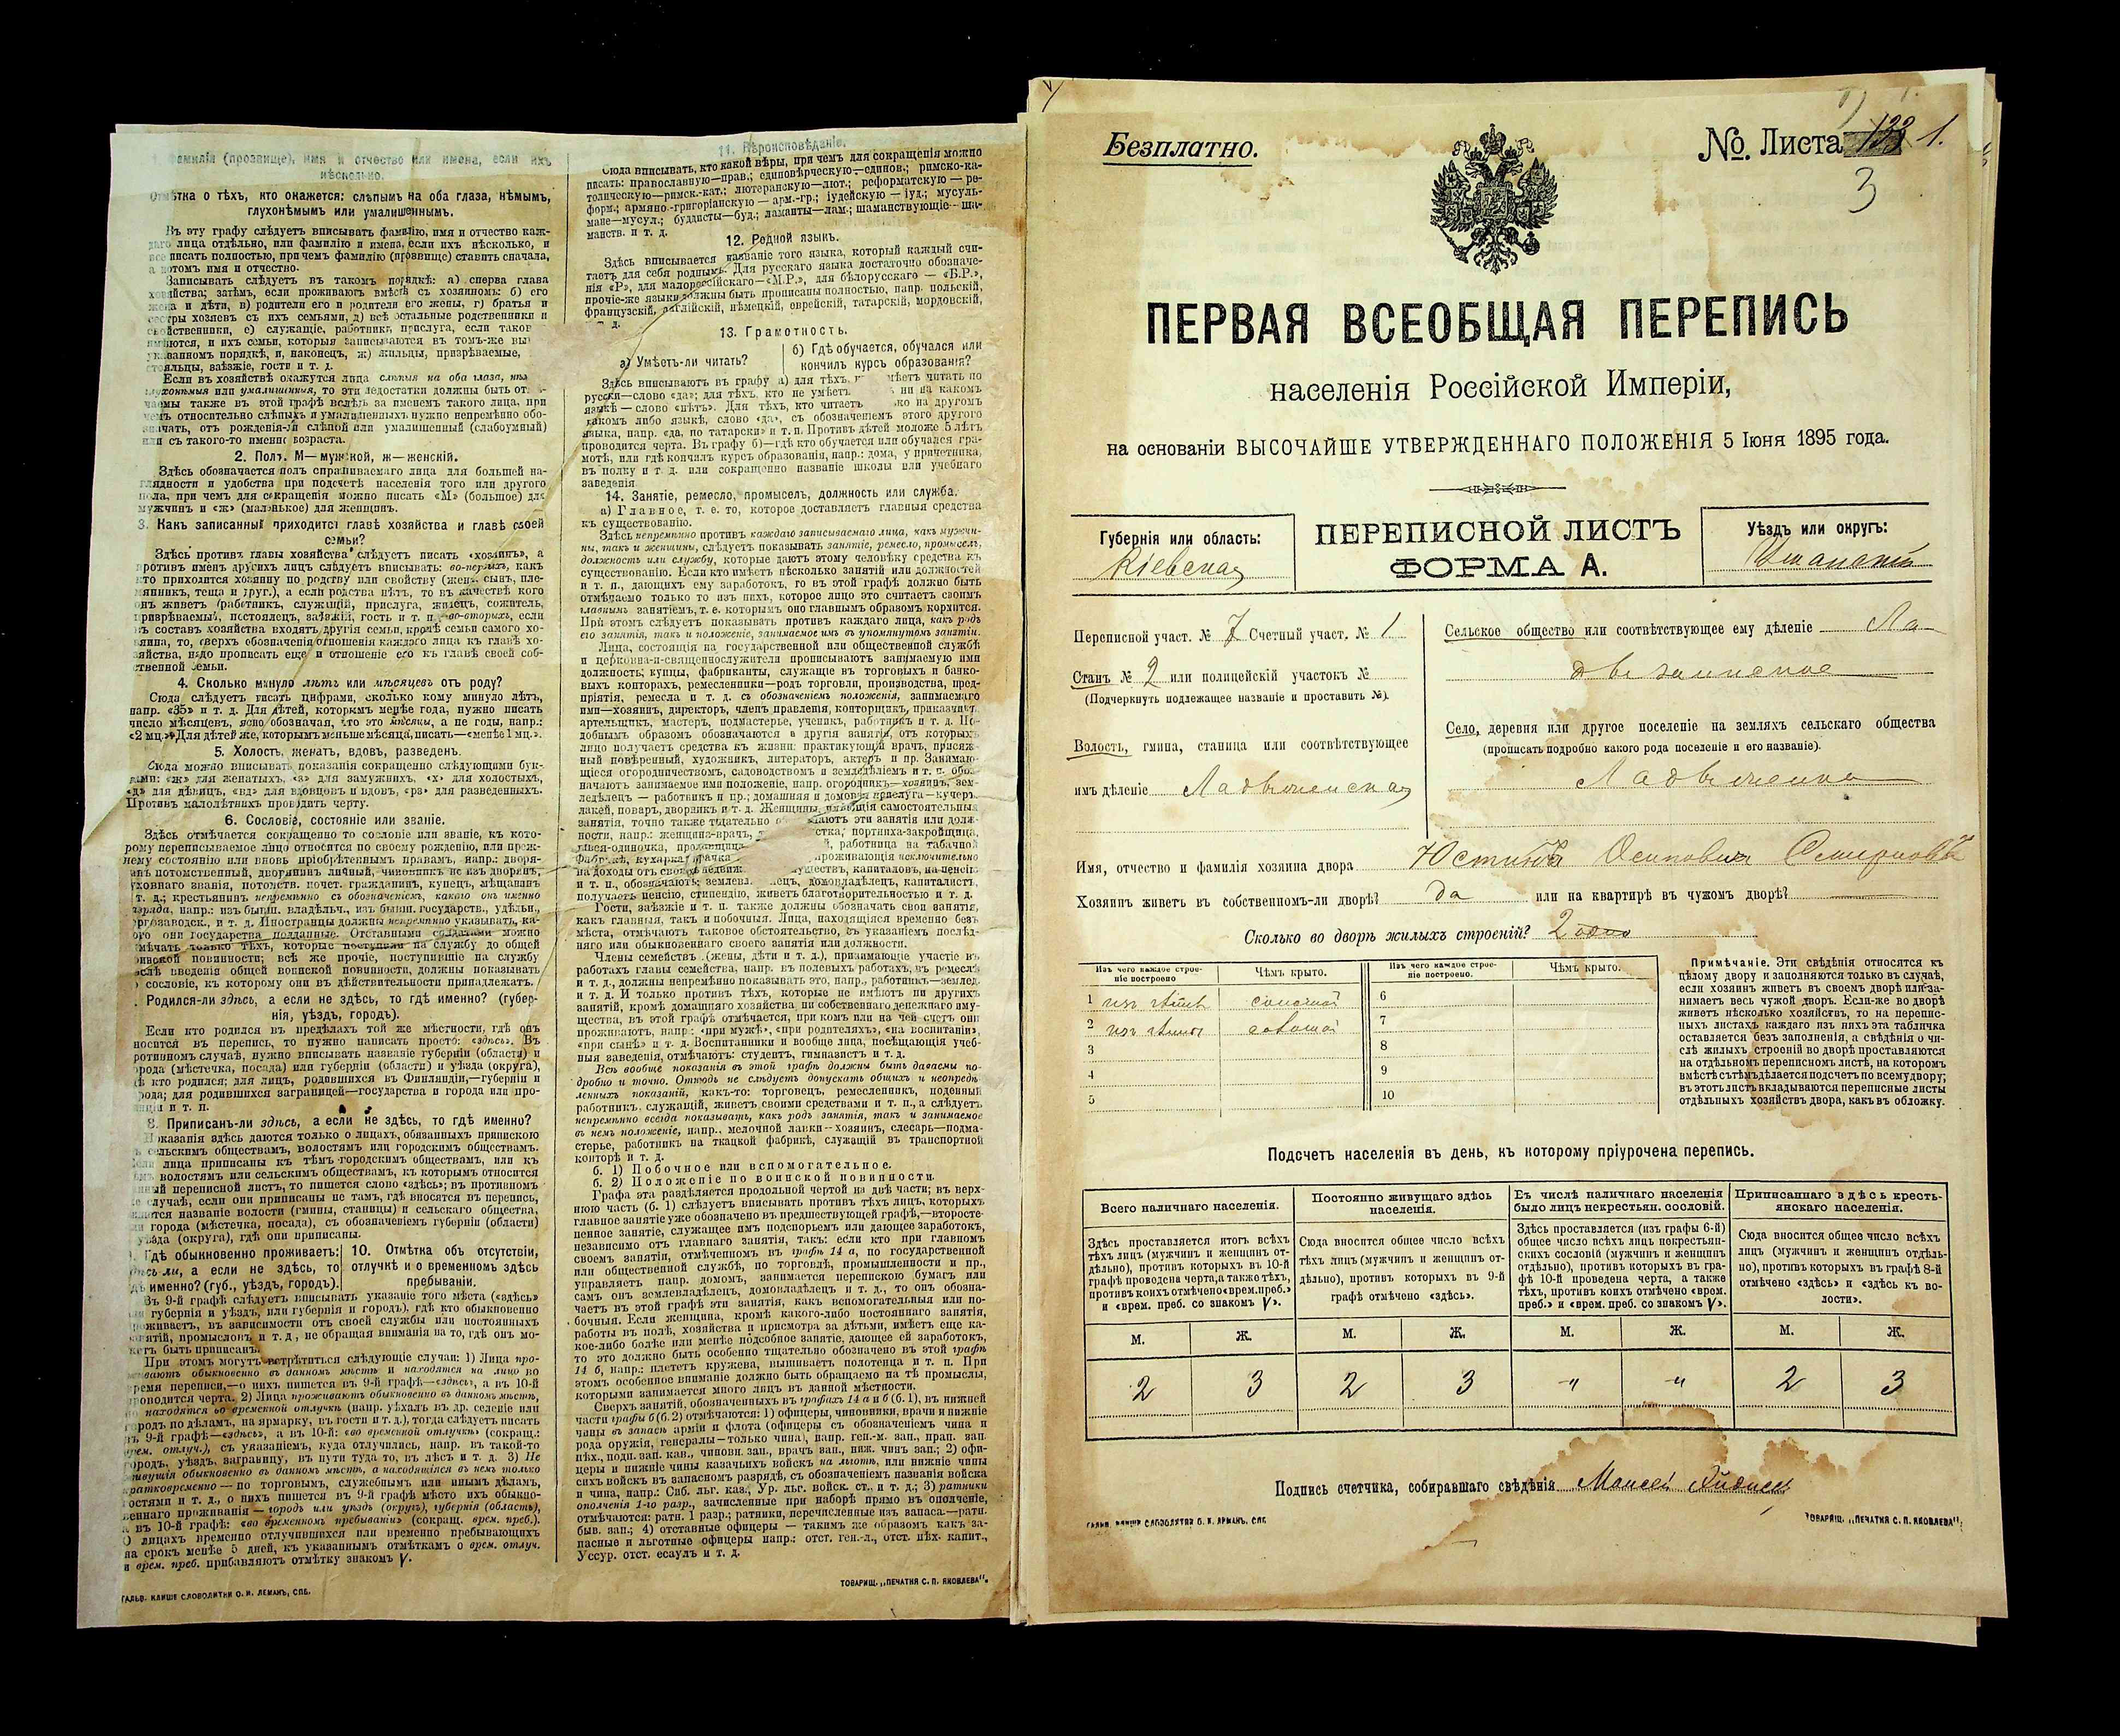 1. Фамилія (прозвище), имя и отчество или имена, если ихъ
нѣсколько.
Отмѣтка о тѣхъ, кто окажется: слѣпымъ на оба глаза, нѣмымъ,
глухонѣмымъ или умалишеннымъ.
Въ эту графу слѣдуетъ вписывать фамилію, имя и отчество каж-
даго лица отдѣльно, или фамилію и имена, если ихъ нѣсколько, и
все писать полностью, при чемъ фамилію (прозвище) ставить сначала,
а потомъ имя и отчество.
Записывать слѣдуетъ въ такомъ порядкѣ: а) сперва глава
хозяйства; затѣмъ, если проживаютъ вмѣстѣ съ хозяиномъ: б) его
жена и дѣти, в) родители его и родители его жены, г) братья и
сестры хозяевъ съ ихъ семьями, д) всѣ остальные родственники и
свойственники, е) служащіе, работники, прислуга, если таков
имѣются, и ихъ семьи, которыя записываются въ томъ-же вы
указанномъ порядкѣ, и, наконецъ, ж) жильцы, призрѣваемые,
стояльцы, заѣзжіе, гости и т. д.
Если въ хозяйствѣ окажутся лица слѣпыя на оба глаза, нѣм
глухонѣмыя или умалишенныя, то эти недостатки должны быть от
чаемы также въ этой графѣ вслѣдъ за именемъ такого лица, при
чемъ относительно слѣпыхъ и умалишенныхъ нужно непремѣнно обо-
значать, отъ рожденія-ли слѣпой или умалишенный (слабоумный)
или съ такого-то именно возраста.
2. Полъ. М—мужской, ж—женскій.
Здѣсь обозначается полъ спрашиваемаго лица для большей на-
глядности и удобства при подсчетѣ населенія того или другого
пола, при чемъ для сокращенія можно писать «М» (большое) для
мужчинъ и «ж» (маленькое) для женщинъ.
3. Какъ записанный приходится главѣ хозяйства и главѣ своей
семьи?
Здѣсь противъ главы хозяйства слѣдуетъ писать «хозяинъ», а
противъ именъ другихъ лицъ слѣдуетъ вписывать: во-первыхъ, какъ
кто приходится хозяину по родству или свойству (жена, сынъ, пле-
мянникъ, теща и друг.), а если родства нѣтъ, то въ качествѣ кого
онъ живетъ (работникъ, служащій, прислуга, жилецъ, сожитель,
призрѣваемый, постоялецъ, заѣзжій, гость и т. п. во-вторыхъ, если
въ составъ хозяйства входятъ другія семьи, кромѣ семьи самого хо-
зяина, то, сверхъ обозначенія отношенія каждаго лица къ главѣ хо-
зяйства, надо прописать еще и отношеніе его къ главѣ своей соб-
ственной семьи.
4. Сколько минуло лѣтъ или мѣсяцевъ отъ роду?
Сюда слѣдуетъ писать цифрами, сколько кому минуло лѣтъ,
напр. «35» и т. д. Для дѣтей, которымъ менѣе года, нужно писать
число мѣсяцевъ, ясно обозначая, что это мѣсяцы, а не годы, напр.:
«2 мц.» Для дѣтей же, которымъ меньше мѣсяца, писать—«менѣе 1 мц.».
5. Холостъ, женатъ, вдовъ, разведенъ.
Сюда можно вписывать показанія сокращенно слѣдующими бук-
вами: «ж» для женатыхъ, «з» для замужнихъ, «х» для холостыхъ,
«д» для дѣвицъ, «вд» для вдовцовъ и вдовъ, «рв» для разведенныхъ.
Противъ малолѣтнихъ проводить черту.
6. Сословіе, состояніе или званіе.
Здѣсь отмѣчается сокращенно то сословіе или званіе, къ кото-
рому переписываемое лицо относится по своему рожденію, или преж-
нему состоянію или вновь пріобрѣтеннымъ правамъ, напр.: дворя-
нинъ потомственный, дворянинъ личный, чиновникъ не изъ дворянъ,
духовнаго званія, потомств. почет. гражданинъ, купецъ, мѣщанинъ
и т. д.; крестьянинъ непремѣнно съ обозначеніемъ, какого онъ именно
разряда, напр.: изъ бывш. владѣльч., изъ бывш. государств., удѣльн.,
горзаводск., и т. д. Иностранцы должны непремѣнно указывать, ка-
кого они государства подданные. Отставными солдатами можно
отмѣчать только тѣхъ, которые поступили на службу до общей
воинской повинности; всѣ же прочіе, поступившіе на службу
послѣ введенія общей воинской повинности, должны показывать
то сословіе, къ которому они въ дѣйствительности принадлежатъ.
7. Родился-ли здѣсь, а если не здѣсь, то гдѣ именно? (губер-
нія, уѣздъ, городъ).
Если кто родился въ предѣлахъ той же мѣстности, гдѣ онъ
вносится въ перепись, то нужно написать просто: «здѣсь». Въ
противномъ случаѣ, нужно вписывать названіе губерніи (области) и
города (мѣстечка, посада) или губерніи (области) и уѣзда (округа),
гдѣ кто родился; для лицъ, родившихся въ Финляндіи,—губерніи и
города; для родившихся заграницей—государства и города или про-
винціи и т. п.
8. Приписанъ-ли здѣсь, а если не здѣсь, то гдѣ именно?
Показанія здѣсь даются только о лицахъ, обязанныхъ припискою
къ сельскимъ обществамъ, волостямъ или городскимъ обществамъ.
Если лица приписаны къ тѣмъ городскимъ обществамъ, или къ
тѣмъ волостямъ или сельскимъ обществамъ, къ которымъ относится
данный переписной листъ, то пишется слово «здѣсь»; въ противномъ
же случаѣ, если они приписаны не тамъ, гдѣ вносятся въ перепись,
пишется названіе волости (гмины, станицы) и сельскаго общества,
или города (мѣстечка, посада), съ обозначеніемъ губерніи (области)
и уѣзда (округа), гдѣ они приписаны.
9. Гдѣ обыкновенно проживаетъ:
здѣсь-ли, а если не здѣсь, то
гдѣ именно? (губ., уѣздъ, городъ).
10. Отмѣтка объ отсутствіи,
отлучкѣ и о временномъ здѣсь
пребываніи.
Въ 9-й графѣ слѣдуетъ вписывать указаніе того мѣста («здѣсь»
или губернія и уѣздъ, или губернія и городъ), гдѣ кто обыкновенно
проживаетъ, въ зависимости отъ своей службы или постоянныхъ
занятій, промысловъ и т. д., не обращая вниманія на то, гдѣ онъ мо-
жетъ быть приписанъ.
При этомъ могутъ встрѣтиться слѣдующіе случаи: 1) Лица про-
живаютъ обыкновенно въ данномъ мѣстѣ и находятся на лицо во
время переписи,—о нихъ пишется въ 9-й графѣ—«здѣсь», а въ 10-й
проводится черта. 2) Лица проживаютъ обыкновенно въ данномъ мѣстѣ,
но находятся во временной отлучкѣ (напр. уѣхалъ въ др. селеніе или
городъ по дѣламъ, на ярмарку, въ гости и т. д.), тогда слѣдуетъ писать
въ 9-й графѣ—«здѣсь», а въ 10-й: «во временной отлучкѣ» (сокращ.:
врем. отлуч.), съ указаніемъ, куда отлучились, напр. въ такой-то
городъ, уѣздъ, заграницу, въ пути туда то, въ лѣсъ и т. д. 3) Не
живущія обыкновенно въ данномъ мѣстѣ, а находящіяся въ немъ только
кратковременно — по торговымъ, служебнымъ или инымъ дѣламъ,
гостями и т. д., о нихъ пишется въ 9-й графѣ мѣсто ихъ обыкно-
веннаго проживанія — городъ или уѣздъ (округъ), губернія (область),
а въ 10-й графѣ: «во временномъ пребываніи» (сокращ. врем. преб.).
О лицахъ временно отлучившихся или временно пребывающихъ
на срокъ менѣе 5 дней, къ указаннымъ отмѣткамъ о врем. отлуч.
и врем. преб. прибавляютъ отмѣтку знакомъ V.
ГАЛЬВ. КЛИШЕ СЛОВОЛИТНИ О. И. ЛЕМАНЪ, СПБ.
11. Вѣроисповѣданіе.
Сюда вписывать, кто какой вѣры, при чемъ для сокращенія можно
писать: православную—прав.; единовѣрческую—единов.; римско-ка-
толическую—римск.-кат.; лютеранскую—лют.; реформатскую — ре-
форм.; армяно-григоріанскую — арм.-гр.; іудейскую — іуд.; мусуль-
мане—мусул.; буддисты—буд.; ламаиты—лам.; шаманствующіе—ша-
манств. и т. д.
12. Родной языкъ.
Здѣсь вписывается названіе того языка, который каждый счи-
таетъ для себя роднымъ. Для русскаго языка достаточно обозначе-
нія «Р», для малороссійскаго—«М.Р.», для бѣлорусскаго — «Б.Р.»,
прочіе-же языки должны быть прописаны полностью, напр. польскій,
французскій, англійскій, нѣмецкій, еврейскій, татарскій, мордовскій,
т. д.
13. Грамотность.
а) Умѣетъ-ли читать?
б) Гдѣ обучается, обучался или
кончилъ курсъ образованія?
Здѣсь вписываютъ въ графу а) для тѣхъ, мѣетъ читать по
русски—слово «да»; для тѣхъ, кто не умѣетъ ни на какомъ
языкѣ — слово «нѣтъ». Для тѣхъ, кто читаетъ ко на другомъ
какомъ либо языкѣ, слово «да», съ обозначеніемъ этого другого
языка, напр. «да, по татарски» и т. п. Противъ дѣтей моложе 5 лѣтъ
проводится черта. Въ графу б)—гдѣ кто обучается или обучался гра-
мотѣ, или гдѣ кончилъ курсъ образованія, напр.: дома, у причетника,
въ полку и т. д. или сокращенно названіе школы или учебнаго
заведенія
14. Занятіе, ремесло, промыселъ, должность или служба.
а) Главное, т. е. то, которое доставляетъ главныя средства
къ существованію.
Здѣсь непремѣнно противъ каждаго записываемаго лица, какъ мужчи-
ны, такъ и женщины, слѣдуетъ показывать занятіе, ремесло, промыселъ,
должность или службу, которые даютъ этому человѣку средства къ
существованію. Если кто имѣетъ нѣсколько занятій или должностей
и т. п., дающихъ ему заработокъ, то въ этой графѣ должно быть
отмѣчаемо только то изъ нихъ, которое лицо это считаетъ своимъ
главнымъ занятіемъ, т. е. которымъ оно главнымъ образомъ кормится.
При этомъ слѣдуетъ показывать противъ каждаго лица, какъ родъ
его занятія, такъ и положеніе, занимаемое имъ въ упомянутомъ занятіи.
Лица, состоящія на государственной или общественной службѣ
и церковно-и-священнослужители прописываютъ занимаемую ими
должность; купцы, фабриканты, служащіе въ торговыхъ и банко-
выхъ конторахъ, ремесленники—родъ торговли, производства, пред-
пріятія, ремесла и т. д. съ обозначеніемъ положенія, занимаемаго
ими—хозяинъ, директоръ, членъ правленія, конторщикъ, приказчикъ,
артельщикъ, мастеръ, подмастерье, ученикъ, работникъ и т. д. По-
добнымъ образомъ обозначаются и другія занятія, отъ которыхъ
лицо получаетъ средства къ жизни: практикующій врачъ, присяж-
ный повѣренный, художникъ, литераторъ, актеръ и пр. Занимаю-
щіеся огородничествомъ, садоводствомъ и земледѣліемъ и т. п. обоз-
начаютъ занимаемое ими положеніе, напр. огородникъ—хозяинъ, зем-
ледѣлецъ — работникъ и пр.; домашняя и домовая прислуга—кучеръ,
лакей, поваръ, дворникъ и т. д. Женщины, имѣющія самостоятельныя
занятія, точно также тщательно о аютъ эти занятія или долж-
ности, напр.: женщина-врачъ, стка, портниха-закройщица,
швея-одиночка, продавщица й, работница на табачной
фабрикѣ, кухарка, прачка проживающія исключительно
на доходы отъ своихъ недвиж уществъ, капиталовъ, на пенсію
и т. п., обозначаютъ: землевл лецъ, домовладѣлецъ, капиталистъ,
получаетъ пенсію, стипендію, живетъ благотворительностью и т. д.
Гости, заѣзжіе и т. п. также должны обозначать свои занятія,
какъ главныя, такъ и побочныя. Лица, находящіяся временно безъ
мѣста, отмѣчаютъ таковое обстоятельство, съ указаніемъ послѣд-
няго или обыкновеннаго своего занятія или должности.
Члены семействъ (жены, дѣти и т. д.), принимающіе участіе въ
работахъ главы семейства, напр. въ полевыхъ работахъ, въ ремеслѣ
и т. д., должны непремѣнно показывать это, напр., работникъ—землед.
и т. д. И только противъ тѣхъ, которые не имѣютъ ни другихъ
занятій, кромѣ домашняго хозяйства ни собственнаго денежнаго иму-
щества, въ этой графѣ отмѣчается, при комъ или на чей счетъ они
проживаютъ, напр.: «при мужѣ», «при родителяхъ», «на воспитаніи»,
«при сынѣ» и т. д. Воспитанники и вообще лица, посѣщающія учеб-
ныя заведенія, отмѣчаютъ: студентъ, гимназистъ и т. д.
Всѣ вообще показанія въ этой графѣ должны быть даваемы по-
дробно и точно. Отнюдь не слѣдуетъ допускать общихъ и неопредѣ-
ленныхъ показаній, какъ-то: торговецъ, ремесленникъ, поденный
работникъ, служащій, живетъ своими средствами и т. п., а слѣдуетъ
непремѣнно всегда показывать, какъ родъ занятія, такъ и занимаемое
въ немъ положеніе, напр., мелочной лавки—хозяинъ, слесарь—подма-
стерье, работникъ на ткацкой фабрикѣ, служащій въ транспортной
конторѣ и т. д.
б. 1) Побочное или вспомогательное.
б. 2) Положеніе по воинской повинности.
Графа эта раздѣляется продольной чертой на двѣ части; въ верх-
нюю часть (б. 1) слѣдуетъ вписывать противъ тѣхъ лицъ, которыхъ
главное занятіе уже обозначено въ предшествующей графѣ,—второсте-
пенное занятіе, служащее имъ подспорьемъ или дающее заработокъ,
независимо отъ главнаго занятія, такъ: если кто при главномъ
своемъ занятіи, отмѣченномъ въ графѣ 14 а, по государственной
или общественной службѣ, по торговлѣ, промышленности и пр.,
управляетъ напр. домомъ, занимается перепискою бумагъ или
самъ онъ землевладѣлецъ, домовладѣлецъ и т. д., то онъ обозна-
чаетъ въ этой графѣ эти занятія, какъ вспомогательныя или по-
бочныя. Если женщина, кромѣ какого-либо постояннаго занятія,
работы въ полѣ, хозяйства и присмотра за дѣтьми, имѣетъ еще ка-
кое-либо болѣе или менѣе подсобное занятіе, дающее ей заработокъ,
то это должно быть особенно тщательно обозначено въ этой графѣ
14 б, напр.: плететъ кружева, вышиваетъ полотенца и т. п. При
этомъ особенное вниманіе должно быть обращаемо на тѣ промыслы,
которыми занимается много лицъ въ данной мѣстности.
Сверхъ занятій, обозначенныхъ въ графахъ 14 а и б (б. 1), въ нижней
части графы б (б. 2) отмѣчаются: 1) офицеры, чиновники, врачи и нижніе
чины въ запасѣ арміи и флота (офицеры съ обозначеніемъ чина и
рода оружія, генералы—только чина), напр. ген.-м. зап., прап. зап.
пѣх., подп. зап. кав., чиновн. зап., врачъ зап., ниж. чинъ зап.; 2) офи-
церы и нижніе чины казачьихъ войскъ на льготѣ, или нижніе чины
сихъ войскъ въ запасномъ разрядѣ, съ обозначеніемъ названія войска
и чина, напр.: Сиб. льг. каз., Ур. льг. войск. ст., и т. д.; 3) ратники
ополченія 1-го разр., зачисленные при наборѣ прямо въ ополченіе,
отмѣчаются: ратн. 1 разр.; ратники, перечисленные изъ запаса—ратн.
быв. зап.; 4) отставные офицеры — такимъ же образомъ какъ за-
пасные и льготные офицеры напр.: отст. ген.-л., отст. пѣх. капит.,
Уссур. отст. есаулъ и т. д.
ТОВАРИЩ. „ПЕЧАТНЯ С. П. ЯКОВЛЕВА".
Безплатно.
№. Листа 133 1.
3
ПЕРВАЯ ВСЕОБЩАЯ ПЕРЕПИСЬ
населенія Россійской Имперіи,
на основаніи ВЫСОЧАЙШЕ УТВЕРЖДЕННАГО ПОЛОЖЕНІЯ 5 Іюня 1895 года.
Губернія или область:
Кіевская
ПЕРЕПИСНОЙ ЛИСТЪ
ФОРМА А.
Уѣздъ или округъ:
Уманскій
Переписной участ. № 7 Счетный участ. № 1
Станъ № 2 или полицейскій участокъ №
(Подчеркнуть подлежащее названіе и проставить №).
Волость, гмина, станица или соотвѣтствующее
имъ дѣленіе Ладыженская
Сельское общество или соотвѣтствующее ему дѣленіе Ла-
дыженское
Село, деревня или другое поселеніе на земляхъ сельскаго общества
(прописать подробно какого рода поселеніе и его названіе).
Ладыженка
Имя, отчество и фамилія хозяина двора Юстинъ Осиповъ Смирновъ
Хозяинъ живетъ въ собственномъ-ли дворѣ? да или на квартирѣ въ чужомъ дворѣ?
Сколько во дворѣ жилыхъ строеній? 2
Изъ чего каждое строе-
ніе построено
Чѣмъ крыто.
Изъ чего каждое строе-
ніе построено.
Чѣмъ крыто.
1 изъ глины соломой 6
2 изъ глины соломой 7
3 8
4 9
5 10
Примѣчаніе. Эти свѣдѣнія относятся къ
цѣлому двору и заполняются только въ случаѣ,
если хозяинъ живетъ въ своемъ дворѣ или за-
нимаетъ весь чужой дворъ. Если-же во дворѣ
живетъ нѣсколько хозяйствъ, то на перепис-
ныхъ листахъ каждаго изъ нихъ эта табличка
оставляется безъ заполненія, а свѣдѣнія о чи-
слѣ жилыхъ строеній во дворѣ проставляются
на отдѣльномъ переписномъ листѣ, на которомъ
вмѣстѣ съ тѣмъ дѣлается подсчетъ по всему двору;
въ этотъ листъ вкладываются переписные листы
отдѣльныхъ хозяйствъ двора, какъ въ обложку.
Подсчетъ населенія въ день, къ которому пріурочена перепись.
Всего наличнаго населенія.
Здѣсь проставляется итогъ всѣхъ
тѣхъ лицъ (мужчинъ и женщинъ от-
дѣльно), противъ которыхъ въ 10-й
графѣ проведена черта, а также тѣхъ,
противъ коихъ отмѣчено «врем. преб.»
и «врем. преб. со знакомъ V».
Постоянно живущаго здѣсь
населенія.
Сюда вносится общее число всѣхъ
тѣхъ лицъ (мужчинъ и женщинъ от-
дѣльно), противъ которыхъ въ 9-й
графѣ отмѣчено «здѣсь».
Въ числѣ наличнаго населенія
было лицъ некрестьян. сословій.
Здѣсь проставляется (изъ графы 6-й)
общее число всѣхъ лицъ некрестьян-
скихъ сословій (мужчинъ и женщинъ
отдѣльно), противъ которыхъ въ гра-
фѣ 10-й проведена черта, а также
тѣхъ, противъ коихъ отмѣчено «врем.
преб.» и «врем. преб. со знакомъ V».
Приписаннаго здѣсь кресть-
янскаго населенія.
Сюда вносится общее число всѣхъ
лицъ (мужчинъ и женщинъ отдѣль-
но), противъ которыхъ въ графѣ 8-й
отмѣчено «здѣсь» и «здѣсь къ во-
лости».
М. Ж. М. Ж. М. Ж. М. Ж.
2 3 2 3 " " 2 3
Подпись счетчика, собиравшаго свѣдѣнія Моисей
ГАЛЬВ. КЛИШЕ СЛОВОЛИТНИ О. И. ЛЕМАНЪ, СПБ.
ТОВАРИЩ. „ПЕЧАТНЯ С. П. ЯКОВЛЕВА".